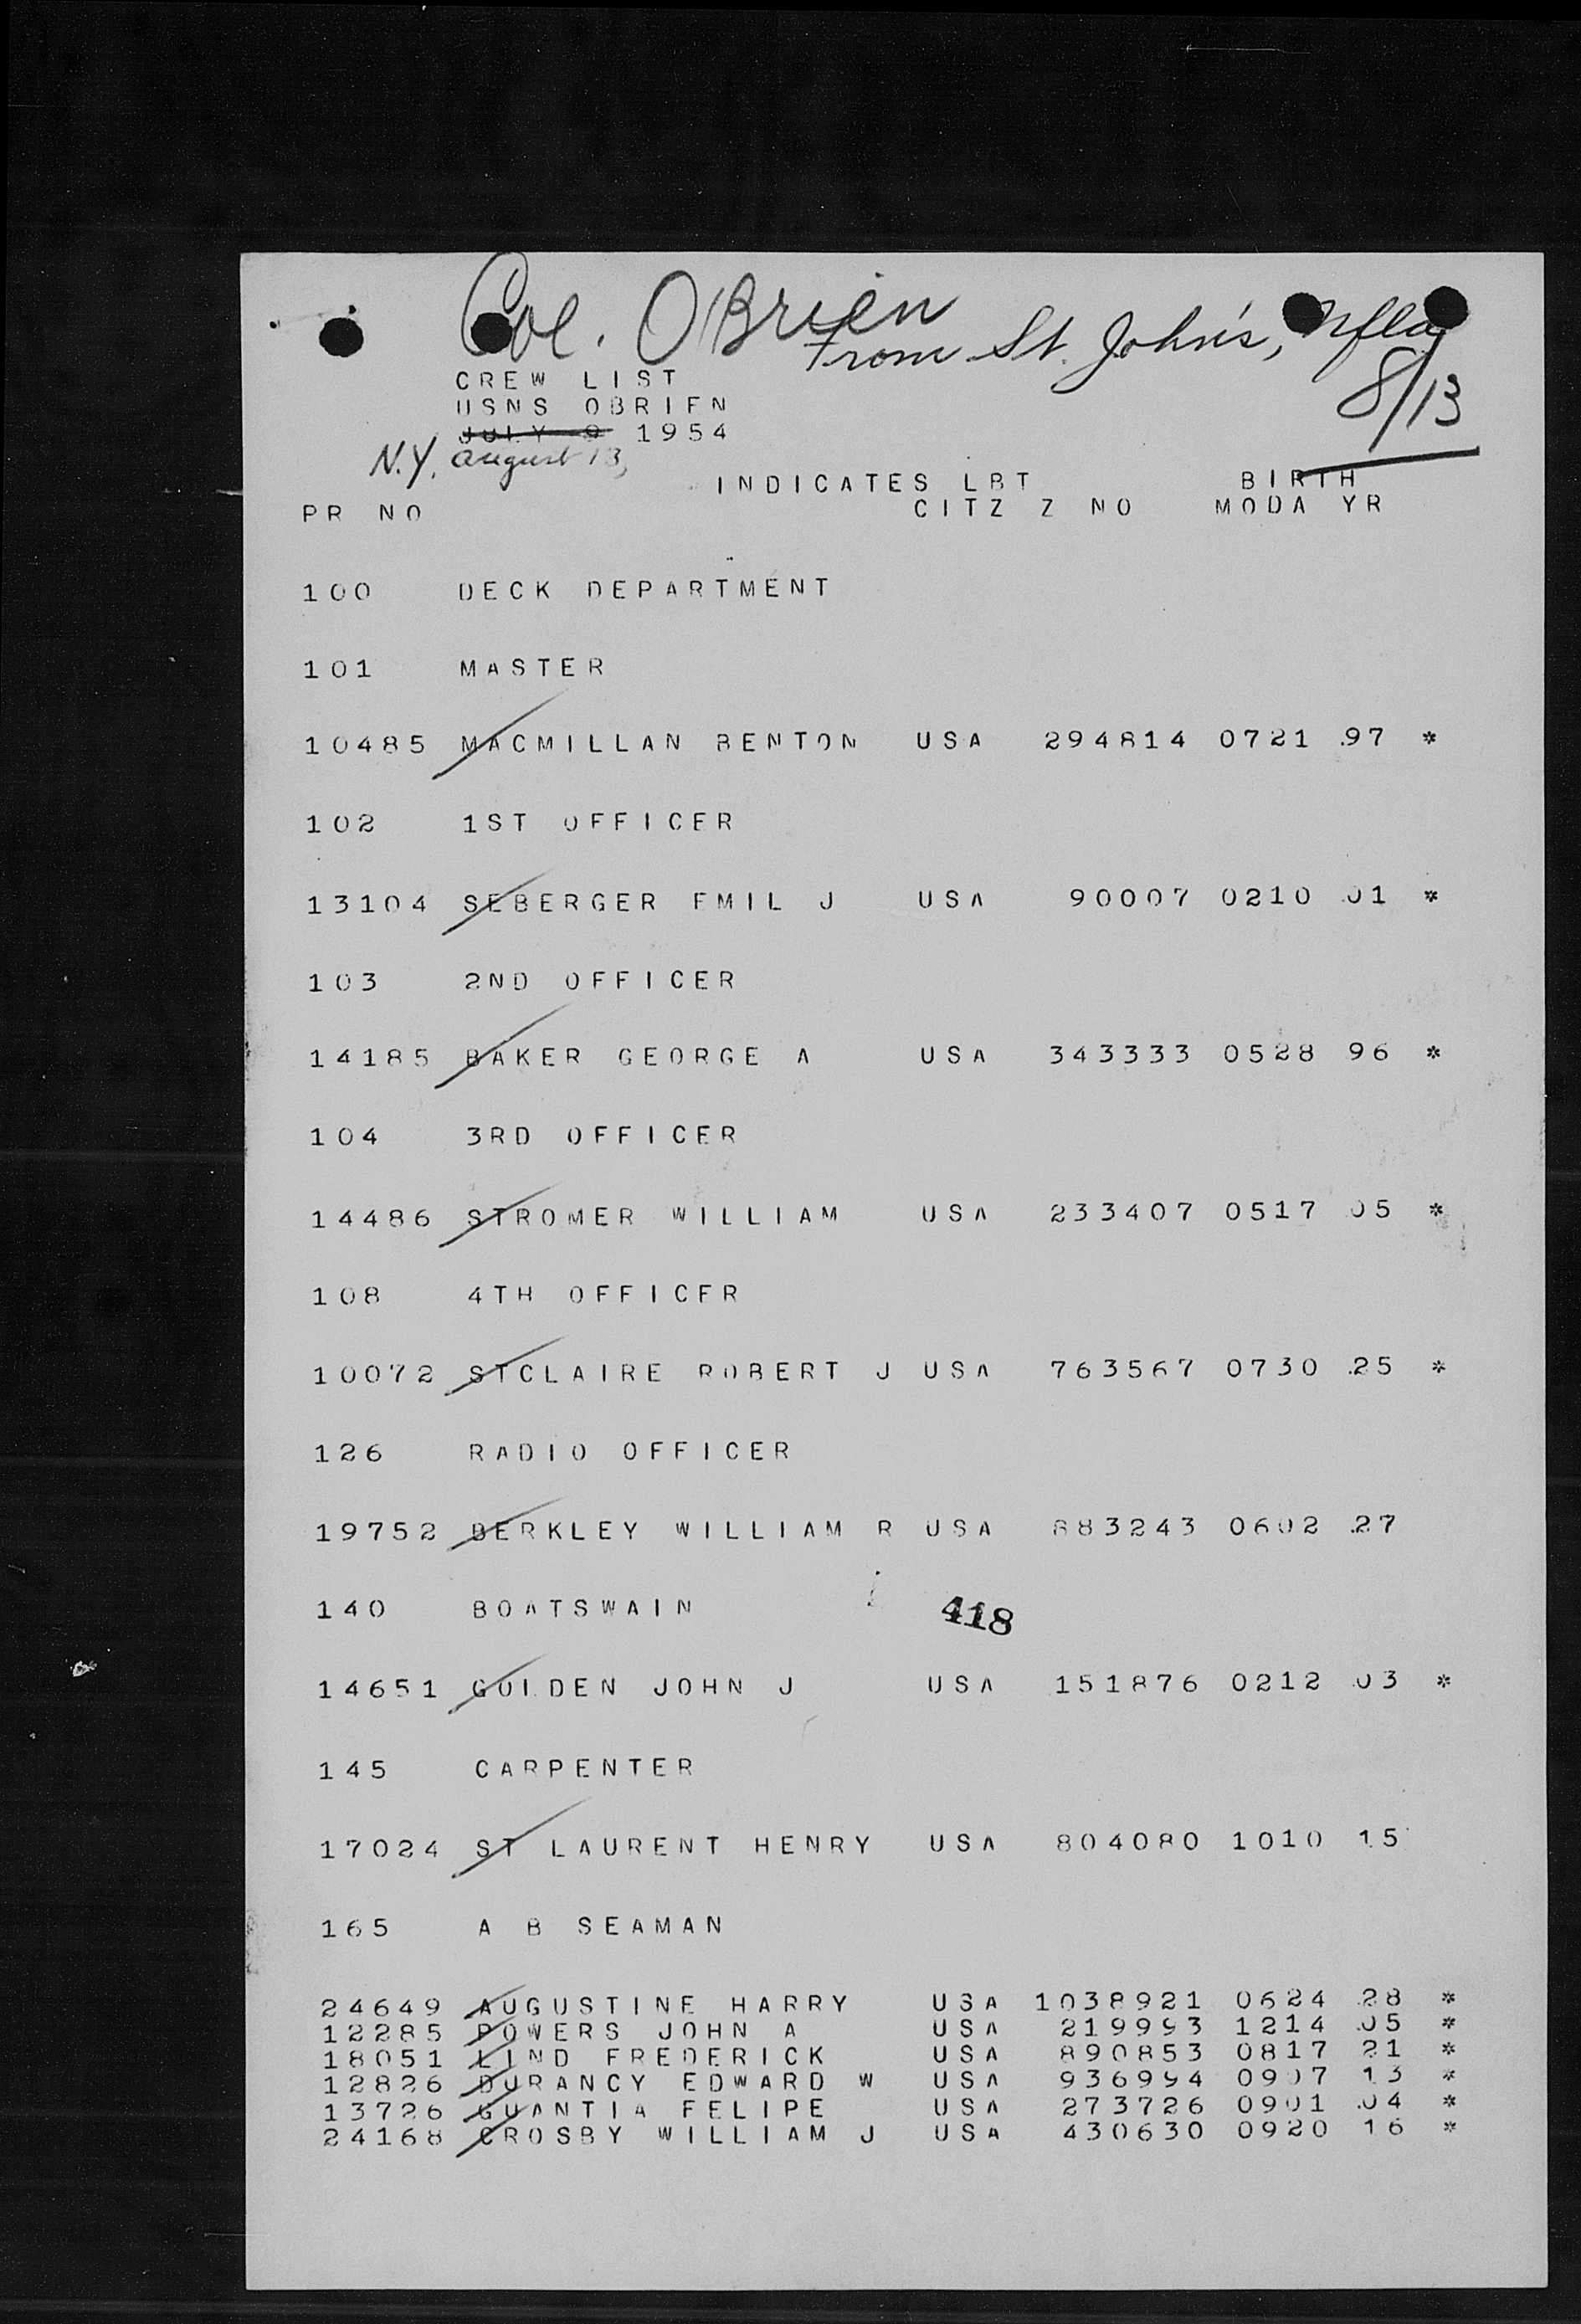 Col. O'Brien
From St. John's, Nfld
8/13
CREW LIST
USNS OBRIEN
JULY 9 1954
N.Y. August 13,
INDICATES LBT BIRTH
PR NO CITZ Z NO MODA YR
100 DECK DEPARTMENT
101 MASTER
10485 MACMILLAN BENTON USA 294814 0721 97 *
102 1ST OFFICER
13104 SEBERGER EMIL J USA 90007 0210 01 *
103 2ND OFFICER
14185 BAKER GEORGE A USA 343333 0528 96 *
104 3RD OFFICER
14486 STROMER WILLIAM USA 233407 0517 05 *
108 4TH OFFICER
10072 STCLAIRE ROBERT J USA 763567 0730 25 *
126 RADIO OFFICER
19752 BERKLEY WILLIAM R USA 883243 0602 27
140 BOATSWAIN
418
14651 GOLDEN JOHN J USA 151876 0212 03 *
145 CARPENTER
17024 ST LAURENT HENRY USA 804080 1010 15
165 A B SEAMAN
24649 AUGUSTINE HARRY USA 1038921 0624 28 *
12285 POWERS JOHN A USA 219993 1214 05 *
18051 LIND FREDERICK USA 890853 0817 21 *
12826 DURANCY EDWARD W USA 936994 0907 13 *
13726 GUANTIA FELIPE USA 273726 0901 04 *
24168 CROSBY WILLIAM J USA 430630 0920 16 *